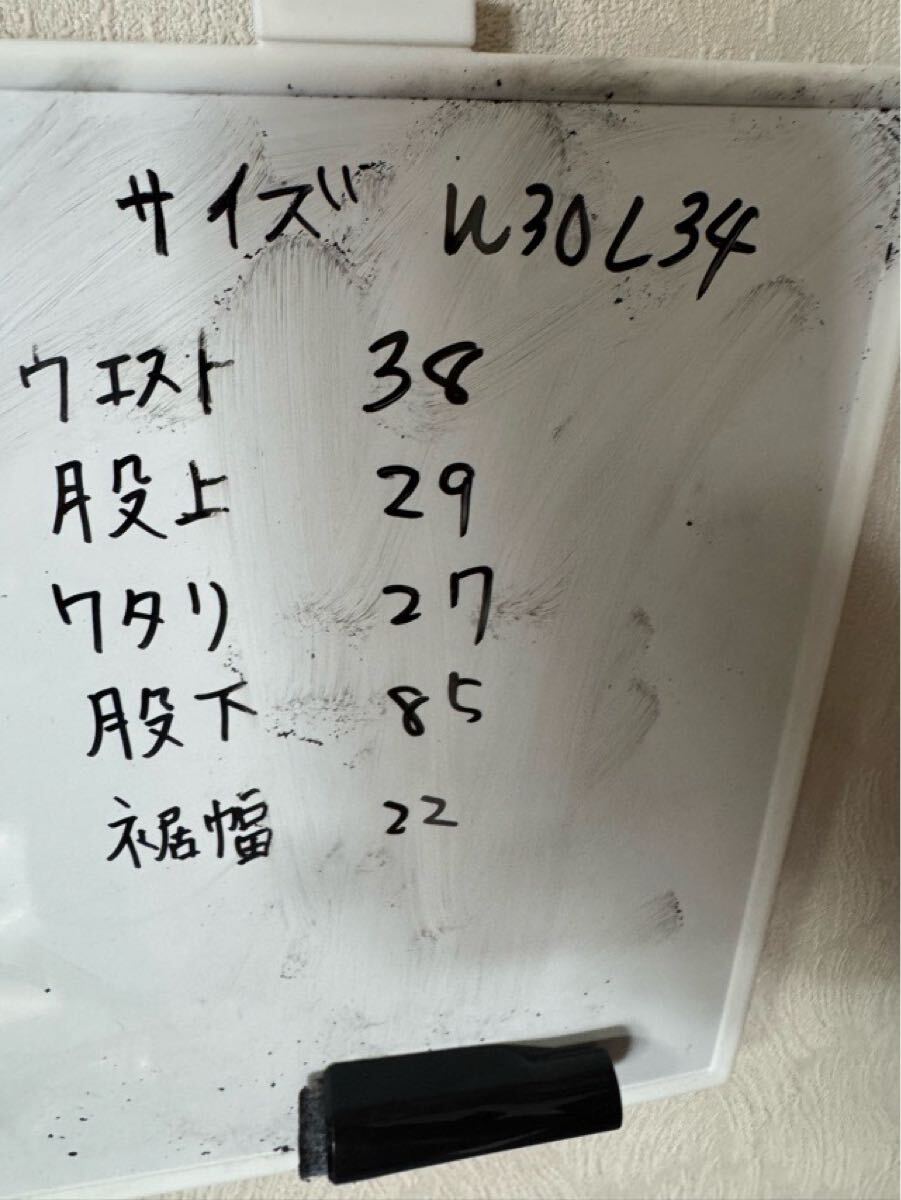 サイズ W30L34
ウエスト 38
股上 29
ワタリ 27
股下 85
裾幅 22